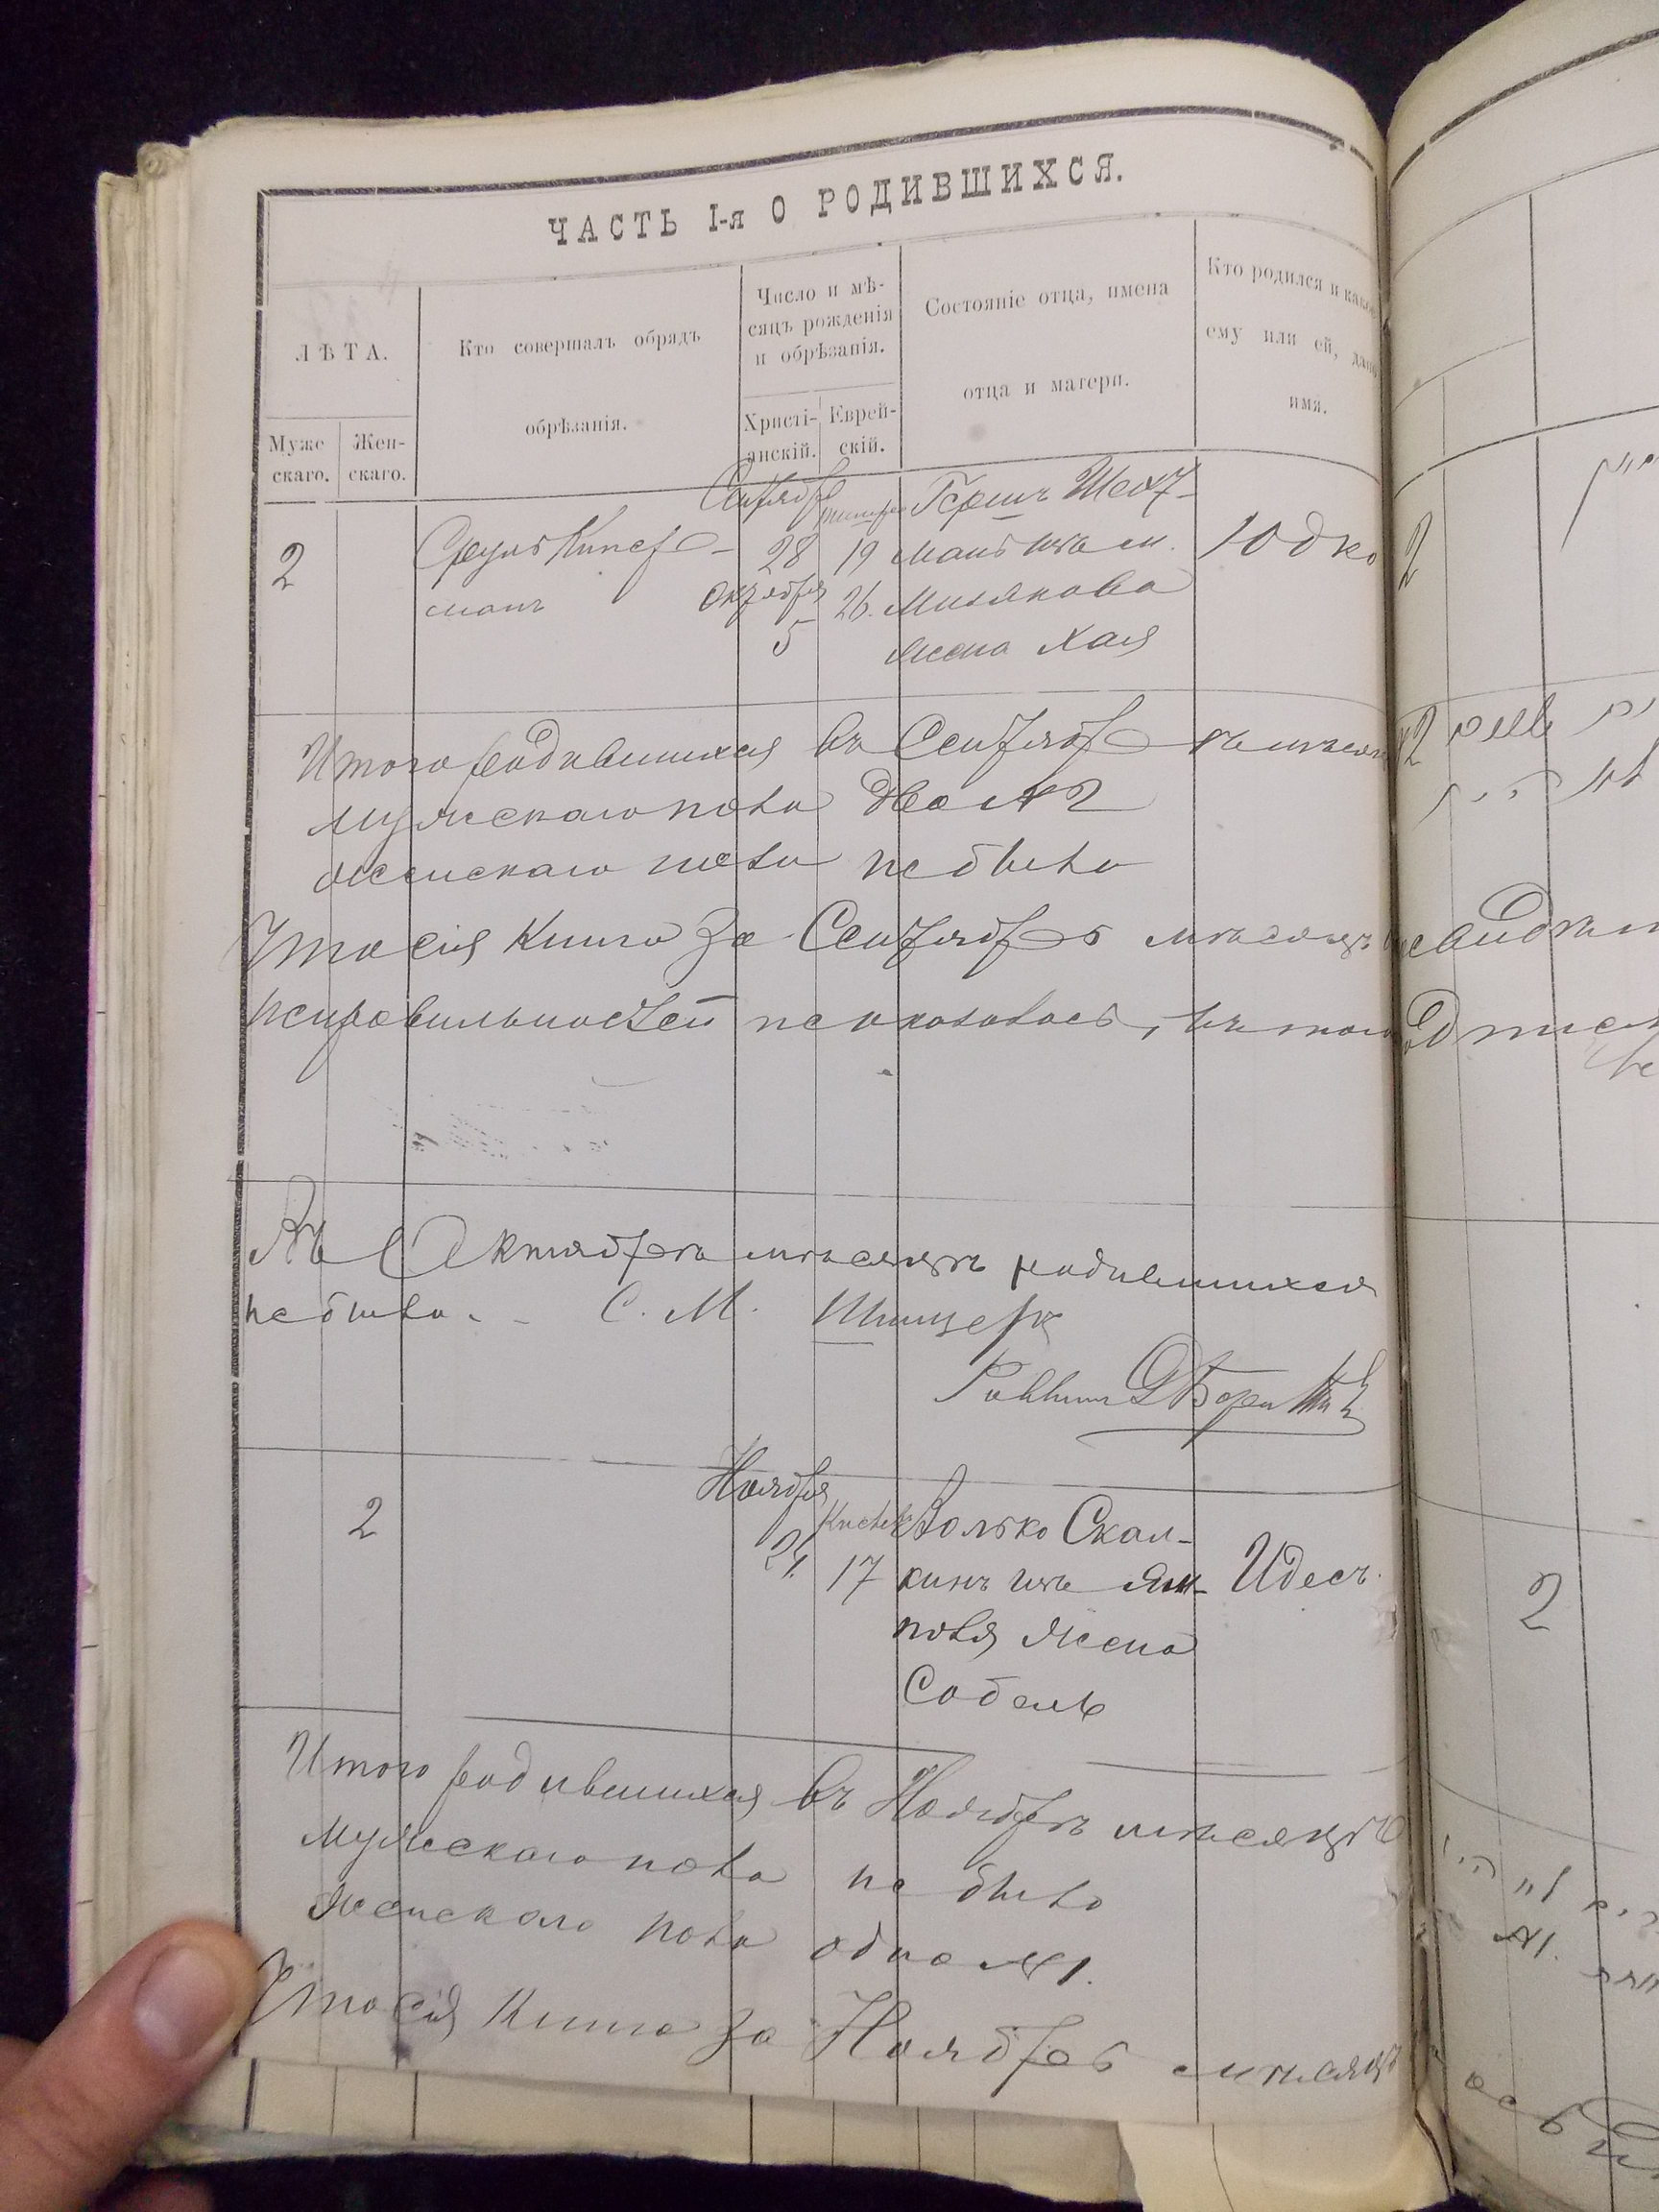 ЧАСТЬ I-я О РОДИВШИХСЯ.
ЛѢТА.
Муже
скаго.
Жен-
скаго.
Кто совершалъ обрядъ
обрѣзанія.
Число и мѣ-
сяцъ рожденія
и обрѣзанія.
Христі-
анскій.
Еврей-
скій.
Состояніе отца, имена
отца и матери.
Кто родился и какое
ему или ей, дано
имя.
Сентября
2
Сруль Кипер-
манъ
28
19
Октября
5
26.
Гершъ Шехт-
манъ изъ м.
Мизякова
жена Хая
Юдко
2
Итого родившихся въ Сентябрѣ мѣсяцѣ
мужскаго пола два № 2
женскаго пола не было
Что сія книга за Сентябрь мѣсяцъ
неправильностей не оказалось, въ томъ
Въ Октябрѣ мѣсяцѣ родившихся
не было. - С. М. Шпицеръ
Раввинъ
2
Ноября
21.
Кислев
17
Волько Скал-
кинъ изъ Ям-
поля жена
Собель
Идесъ.
2
Итого родившихся въ Ноябрѣ мѣсяцѣ
мужскаго пола не было
женскаго пола одна №1.
Что сія книга за Ноябрь мѣсяцъ